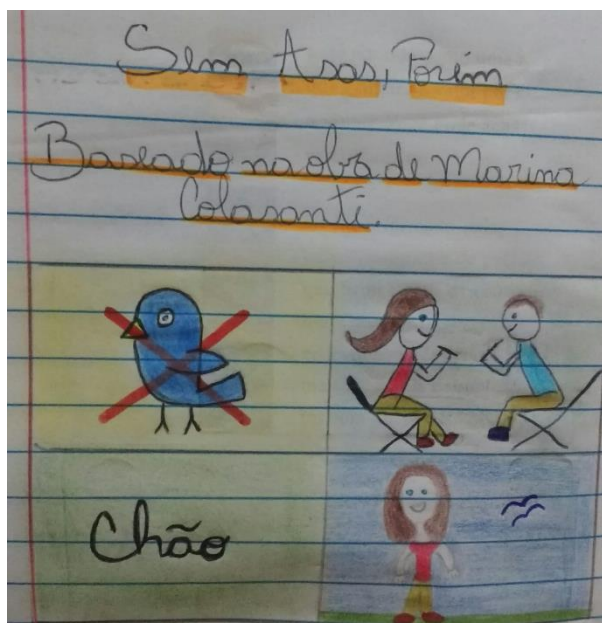 Sem Asas, Porém
Baseado na obra de Marina
Colasanti.
Chão